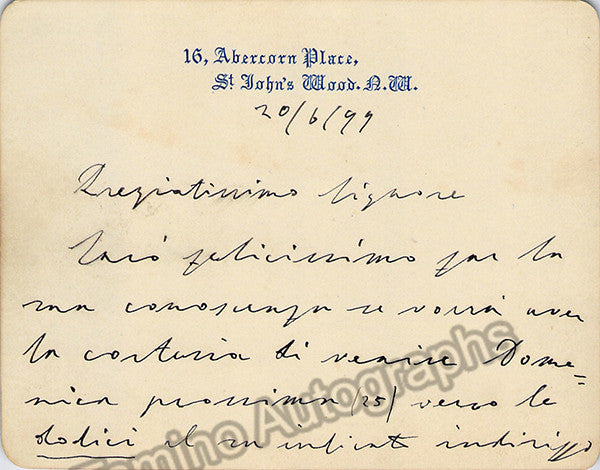 16, Abercorn Place,
St John's Wood. N.W.
20/6/99
Pregiatissimo Signore
Sarò felicissimo far la
sua conoscenza se vorrà aver
la cortesia di venire Dome=
nica prossima (25) verso le
dodici al su indicat indirizzo
Tamino Autographs